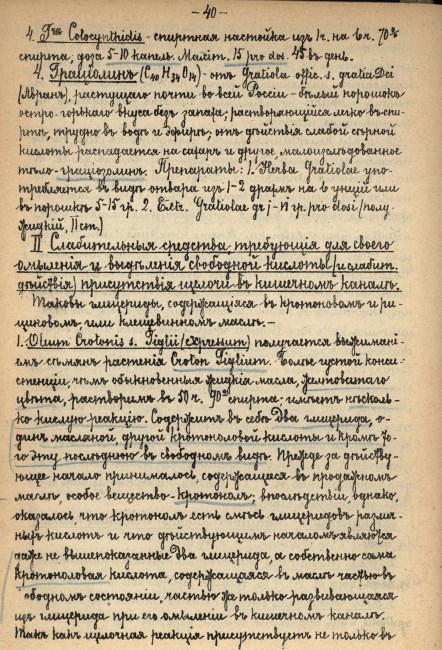 — 40 —
4. T-ra Colocynthidis - спиртная настойка изъ 1ч. на 6ч. 70%
спирта, доза 5-10 капель. Maxim. 15 pro dosi. 45 въ день.
4. Граціолинъ (C40 H34 O14) - отъ Gratiola offic. s. gratia Dei
(Авранъ), растущаго почти во всей Россіи - бѣлый порошокъ
остро-горькаго вкуса безъ запаха; растворяющійся легко въ спи-
ртѣ, трудно въ водѣ и эфирѣ; отъ дѣйствія слабой сѣрной
кислоты распадается на сахаръ и другое, малоизслѣдованное
тѣло-граціозолинъ. Препараты: 1. Herba Gratiolae упо-
требляется въ видѣ отвара изъ 1-2 драхмъ на 6 унцій или
въ порошкѣ 5-15 гр. 2. Extr. Gratiolae gr j-vi гр. pro dosi (полу-
жидкій, II ст.)
II Слабительныя средства, требующія для своего
омыленія и выдѣленія свободной кислоты (и слабит.
дѣйствія) присутствія щелочи въ кишечномъ каналѣ.
Таковы глицериды, содержащіяся въ кротоновомъ и ри-
циновомъ, или клещевинномъ маслѣ.—
1. Oleum Crotonis s. Tiglii (expressum) получается выжимані-
емъ сѣмянъ растенія Croton Tiglium. Болѣе густой конси-
стенціи, чѣмъ обыкновенныя жидкія масла, желтоватаго
цвѣта, растворимъ въ 50 ч. 90% спирта; имѣетъ нѣсколь-
ко кислую реакцію. Содержитъ въ себѣ два глицерида, о-
динъ масляной другой кротоноловой кислоты и кромѣ то-
го эту послѣднюю въ свободномъ видѣ. Прежде за дѣйству-
ющее начало принималось, содержащееся въ продажномъ
маслѣ, особое вещество-кротонолъ; впослѣдствіи, однако,
оказалось, что кротонолъ есть смѣсь глицеридовъ различ-
ныхъ кислотъ и что дѣйствующимъ началомъ являются
даже не вышепоказанные два глицерида, а собственно сама
кротоноловая кислота, содержащаяся въ маслѣ частью въ
свободномъ состояніи, частью же только развивающаяся
изъ глицерида при его омыленіи въ кишечномъ каналѣ.
Такъ какъ щелочная реакція присутствуетъ не только въ